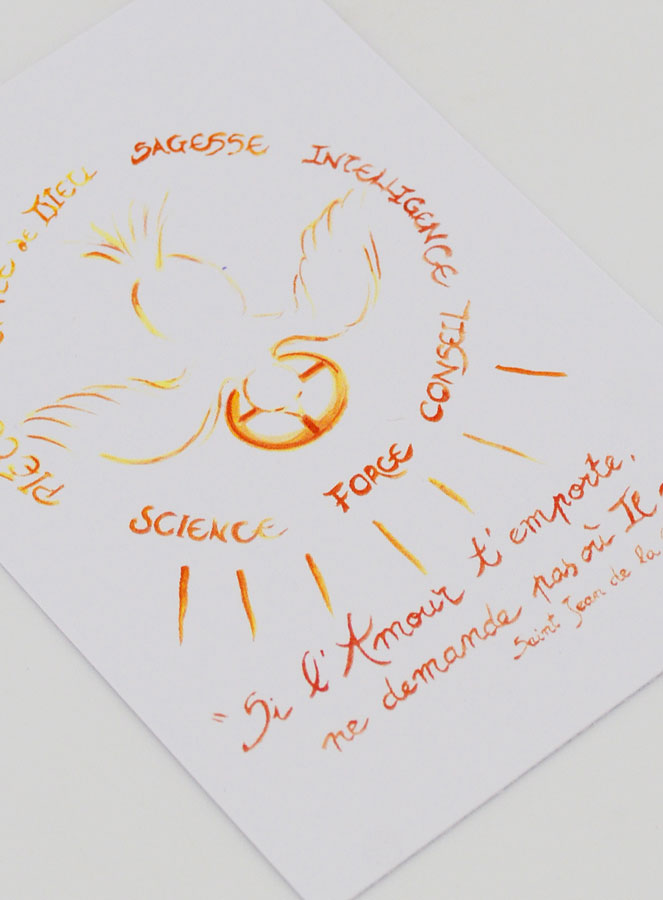 SAGESSE
INTELLIGENCE
CONSEIL
FORCE
SCIENCE
DE DIEU
"Si l'Amour t'emporte,
ne demande pas où Il
Saint Jean de la